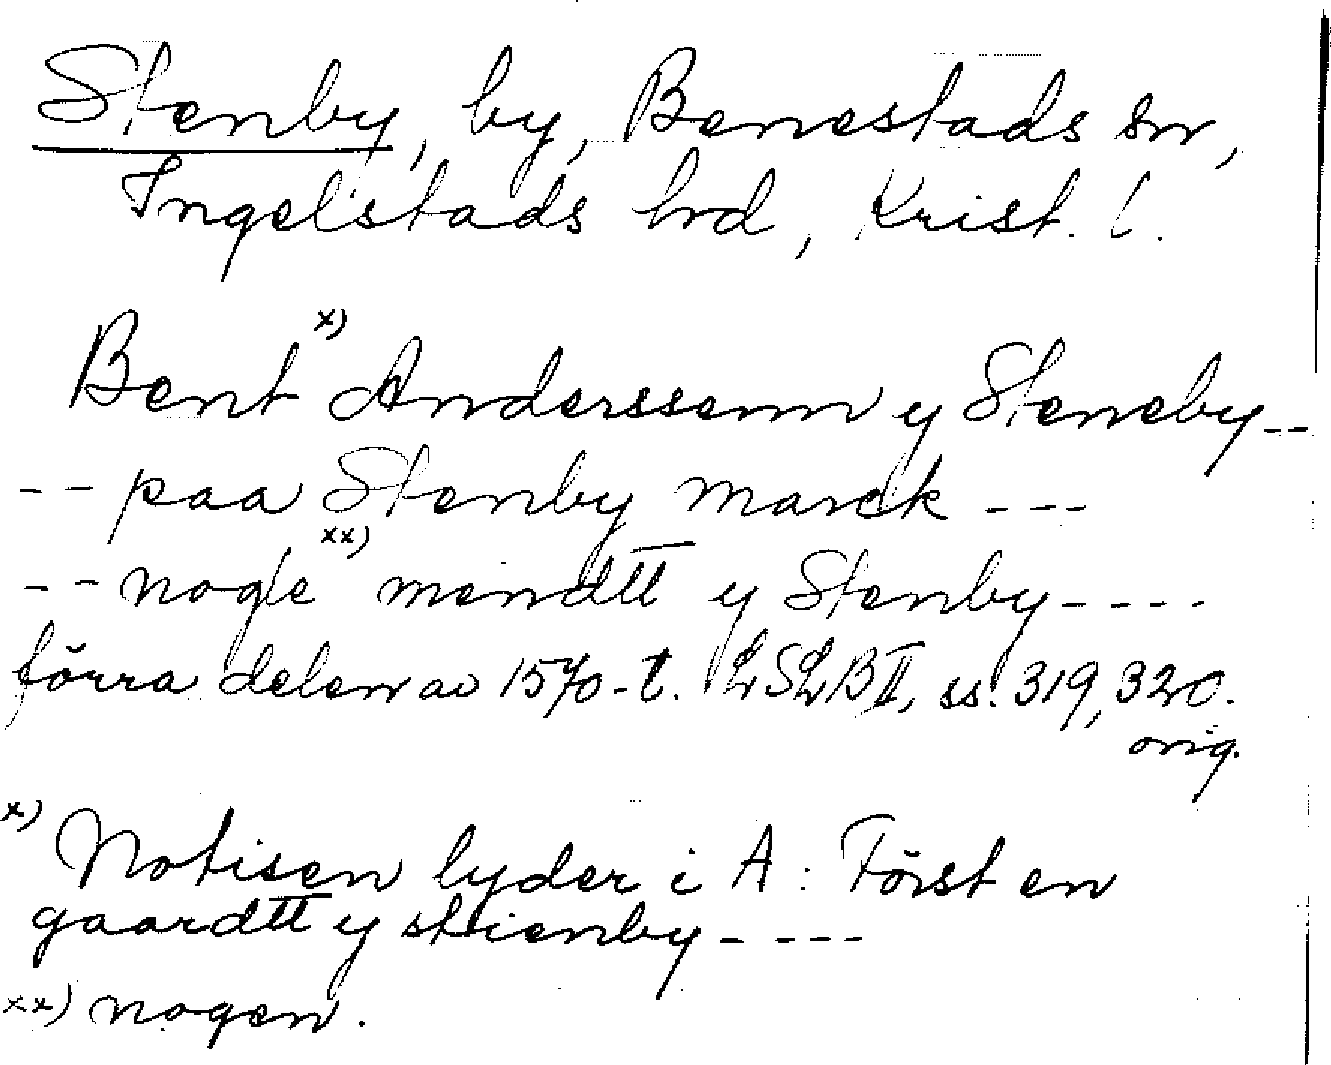 Stenby, by, Benestads sn,
Ingelstads hrd, Krist. l.
Bent x) Anderssenn y Steneby--
-- paa Stenby marck ---
-- nogle xx) mendtt y Stenby----
förra delen av 1570-t. LSLB II, ss. 319, 320.
orig.
x) Notisen lyder i A: Först en
gaardtt y stienby----
xx) nogen.